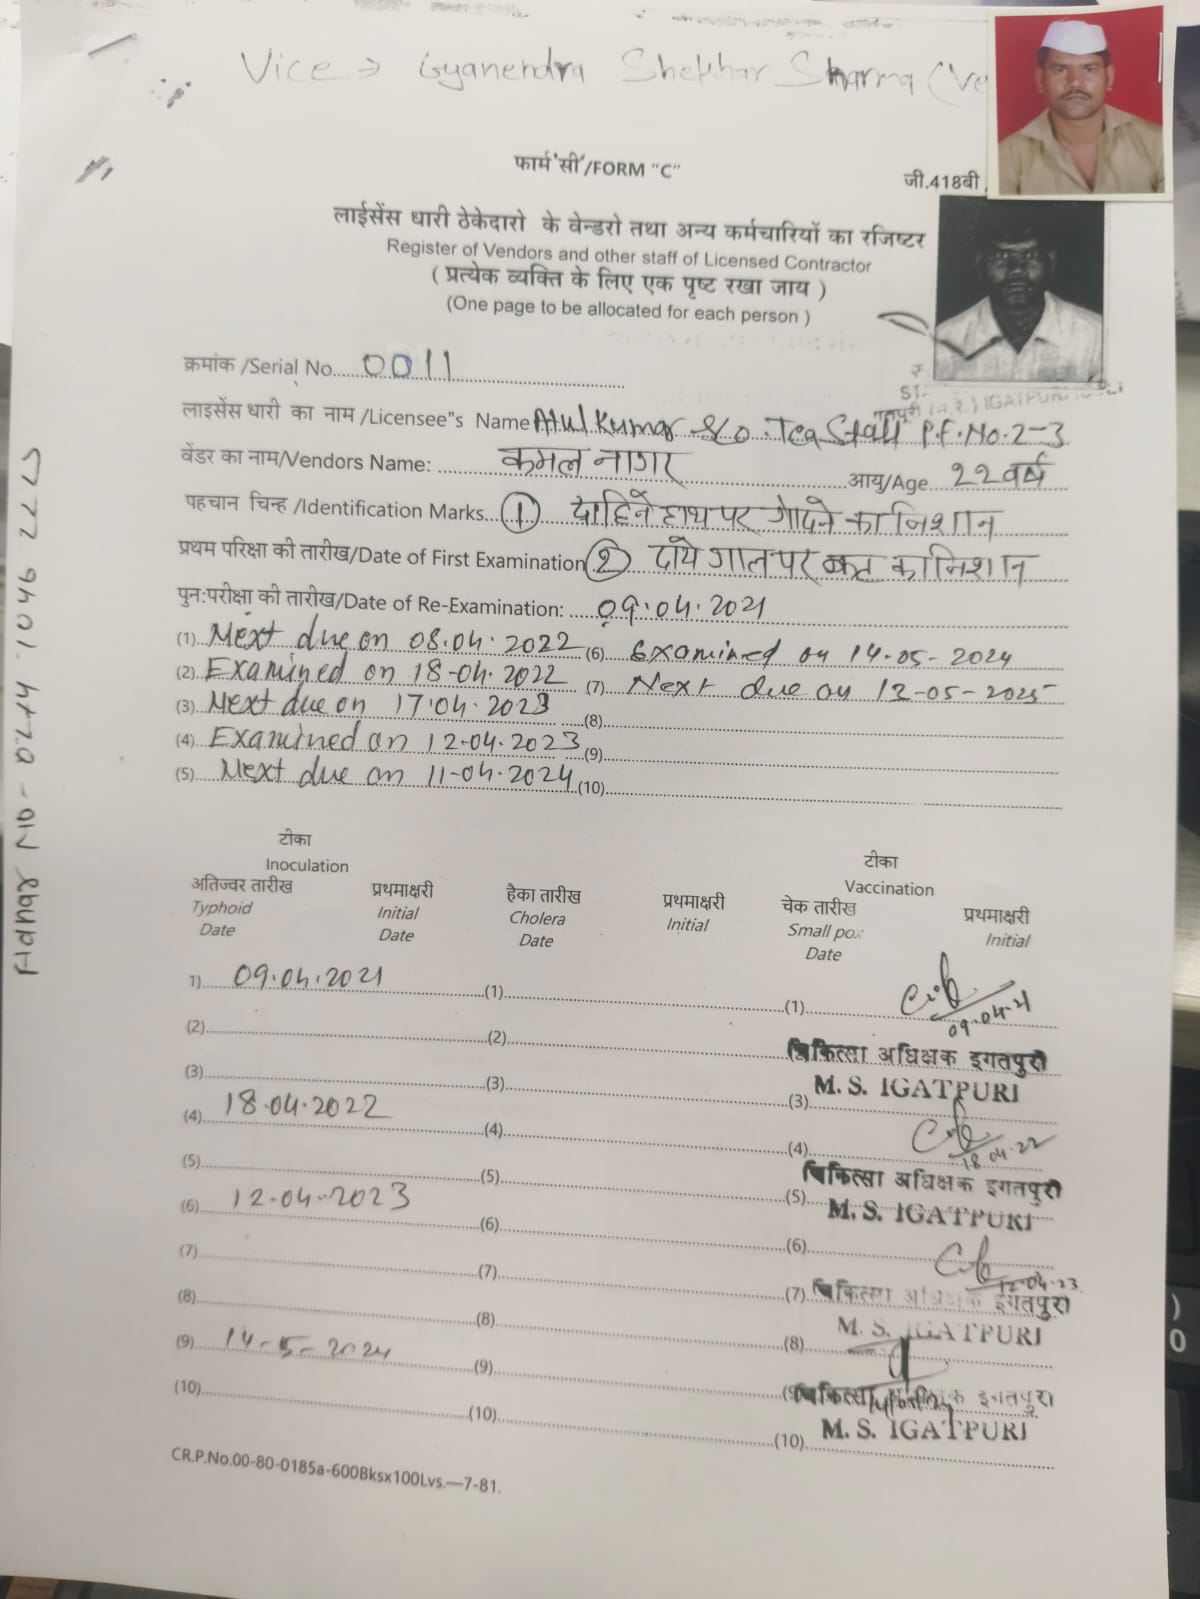 Vice → Gyanendra Shekhar Sharma (Ve
फार्म 'सी'/FORM "C"
जी.418बी
लाईसेंस धारी ठेकेदारो के वेन्डरो तथा अन्य कर्मचारियों का रजिष्टर
Register of Vendors and other staff of Licensed Contractor
( प्रत्येक व्यक्ति के लिए एक पृष्ट रखा जाय )
(One page to be allocated for each person )
क्रमांक /Serial No. 0011
IGATPURI
लाइसेंस धारी का नाम /Licensee"s Name Atul Kumar S/o. Tea Stall P.F. No. 2-3
वेंडर का नाम/Vendors Name: कमल नागर आयु/Age 22 वर्ष
पहचान चिन्ह /Identification Marks ① दाहिने हाथ पर गोदने का निशान
प्रथम परिक्षा की तारीख/Date of First Examination ② दाये गाल पर कट का निशान
पुन:परीक्षा की तारीख/Date of Re-Examination: 09.04.2021
(1) Next due on 08.04.2022 (6) Examined on 14-05-2024
(2) Examined on 18-04.2022 (7) Next due on 12-05-2025
(3) Next due on 17.04.2023 (8)
(4) Examined on 12.04.2023 (9)
(5) Next due on 11-04.2024 (10)
टीका टीका
Inoculation Vaccination
अतिज्वर तारीख प्रथमाक्षरी हैका तारीख प्रथमाक्षरी चेक तारीख प्रथमाक्षरी
Typhoid Initial Cholera Initial Small pox Initial
Date Date Date Date
1) 09.04.2021 (1) (1) 09.04.21
(2) (2) चिकित्सा अधिक्षक इगतपुरी
(3) (3) (3) M. S. IGATPURI
(4) 18.04.2022 (4) (4) 18.04.22
(5) (5) (5) चिकित्सा अधिक्षक इगतपुरी
M. S. IGATPURI
(6) 12-04-2023 (6) (6) 12-04-23
(7) (7) (7) चिकित्सा अधिक्षक इगतपुरी
(8) (8) (8) M. S. IGATPURI
(9) 14-5-2024 (9) (9) चिकित्सा अधिक्षक इगतपुरी
(10) (10) (10) M. S. IGATPURI
CR.P.No.00-80-0185a-600Bksx100Lvs.—7-81.